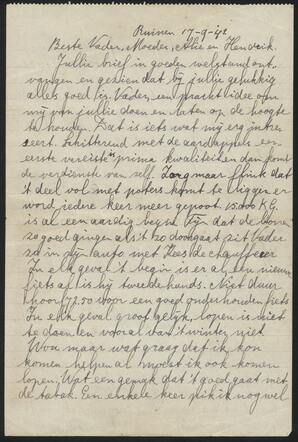 Ruinen 17-9-'42
Beste Vader, Moeder, Alie en Hendrik.
Jullie brief in goeden welstand ont-
vangen en gezien dat bij jullie gelukkig
alles goed is. Vader, een pracht idee om
mij van jullie doen en laten op de hoogte
te houden. Dat is iets wat mij erg intres-
seert. Schitterend met de aardappels en
eerste vereiste prima kwaliteit en dan komt
de verdienste van zelf. Zorg maar flink dat
't deel vol met poters komt te liggen er
word iedere keer meer gepoot. 15.000 K.G.
is al een aardig begin. Fijn dat de
zo goed gingen als 't zo doorgaat zit Vader
zo in zijn auto met Kees de chauffeur
In elk geval 't begin is er al een nieuwe
fiets af is hij tweede hands. Niet duur
hoor 72.50 voor een goed onderhouden fiets
In elk geval groot gelijk, lopen is niet
te doen en vooral van 't winter niet
Wou maar wat graag dat ik kon
komen helpen al moest ik ook komen
lopen. Wat een gemak dat 't goed gaat met
de tabak. Een enkele keer pik ik nog wel